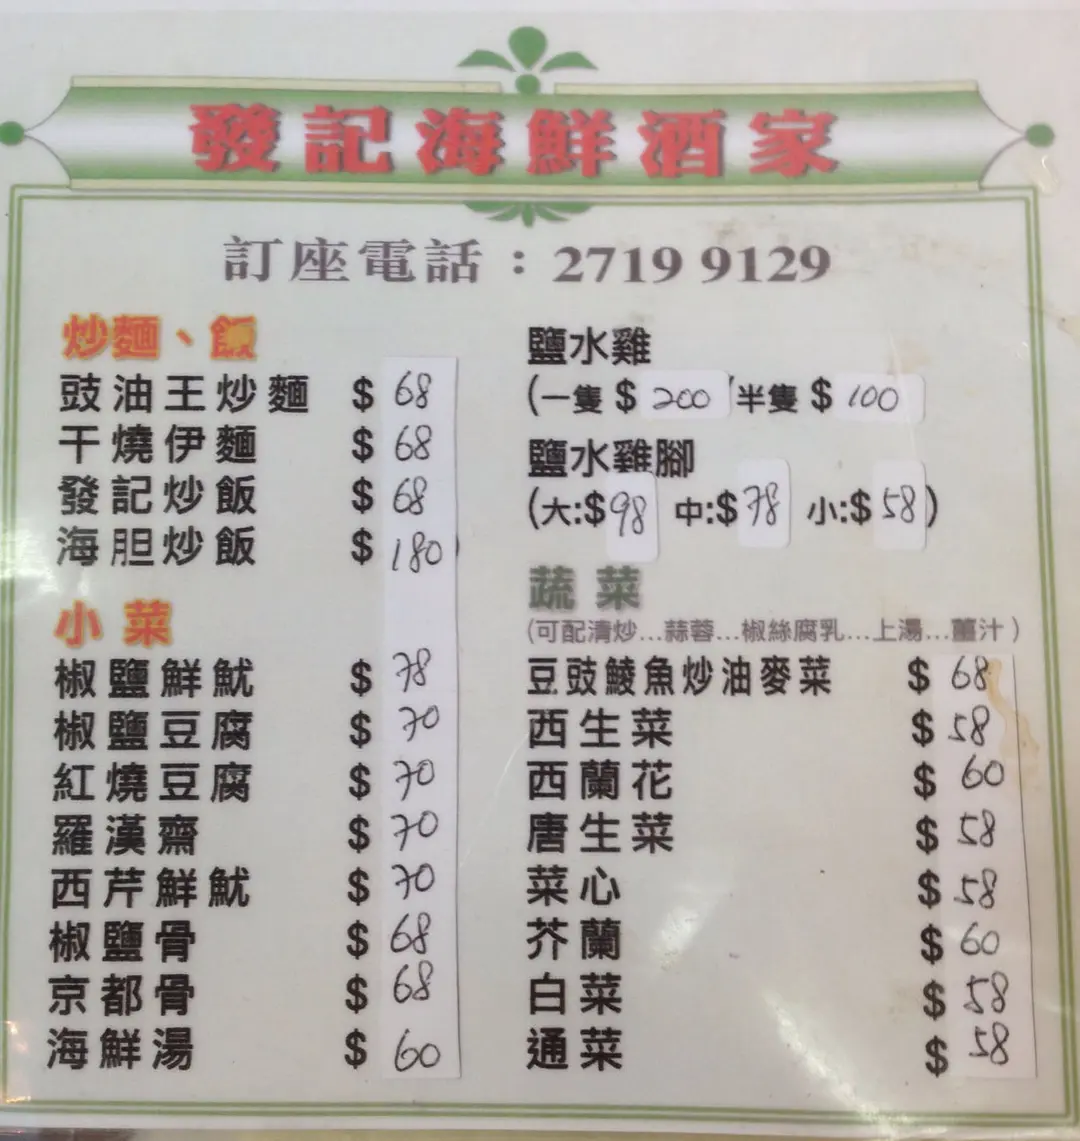 發記海鮮酒家
訂座電話：2719 9129
炒麵、飯
豉油王炒麵 $ 68
干燒伊麵 $ 68
發記炒飯 $ 68
海胆炒飯 $ 180
小菜
椒鹽鮮魷 $ 78
椒鹽豆腐 $ 70
紅燒豆腐 $ 70
羅漢齋 $ 70
西芹鮮魷 $ 70
椒鹽骨 $ 68
京都骨 $ 68
海鮮湯 $ 60
鹽水雞
(一隻 $ 200 半隻 $ 100
鹽水雞腳
(大:$98 中:$78 小:$58)
蔬菜
(可配清炒...蒜蓉...椒絲腐乳...上湯...薑汁)
豆豉鯪魚炒油麥菜 $ 68
西生菜 $ 58
西蘭花 $ 60
唐生菜 $ 58
菜心 $ 58
芥蘭 $ 60
白菜 $ 58
通菜 $ 58